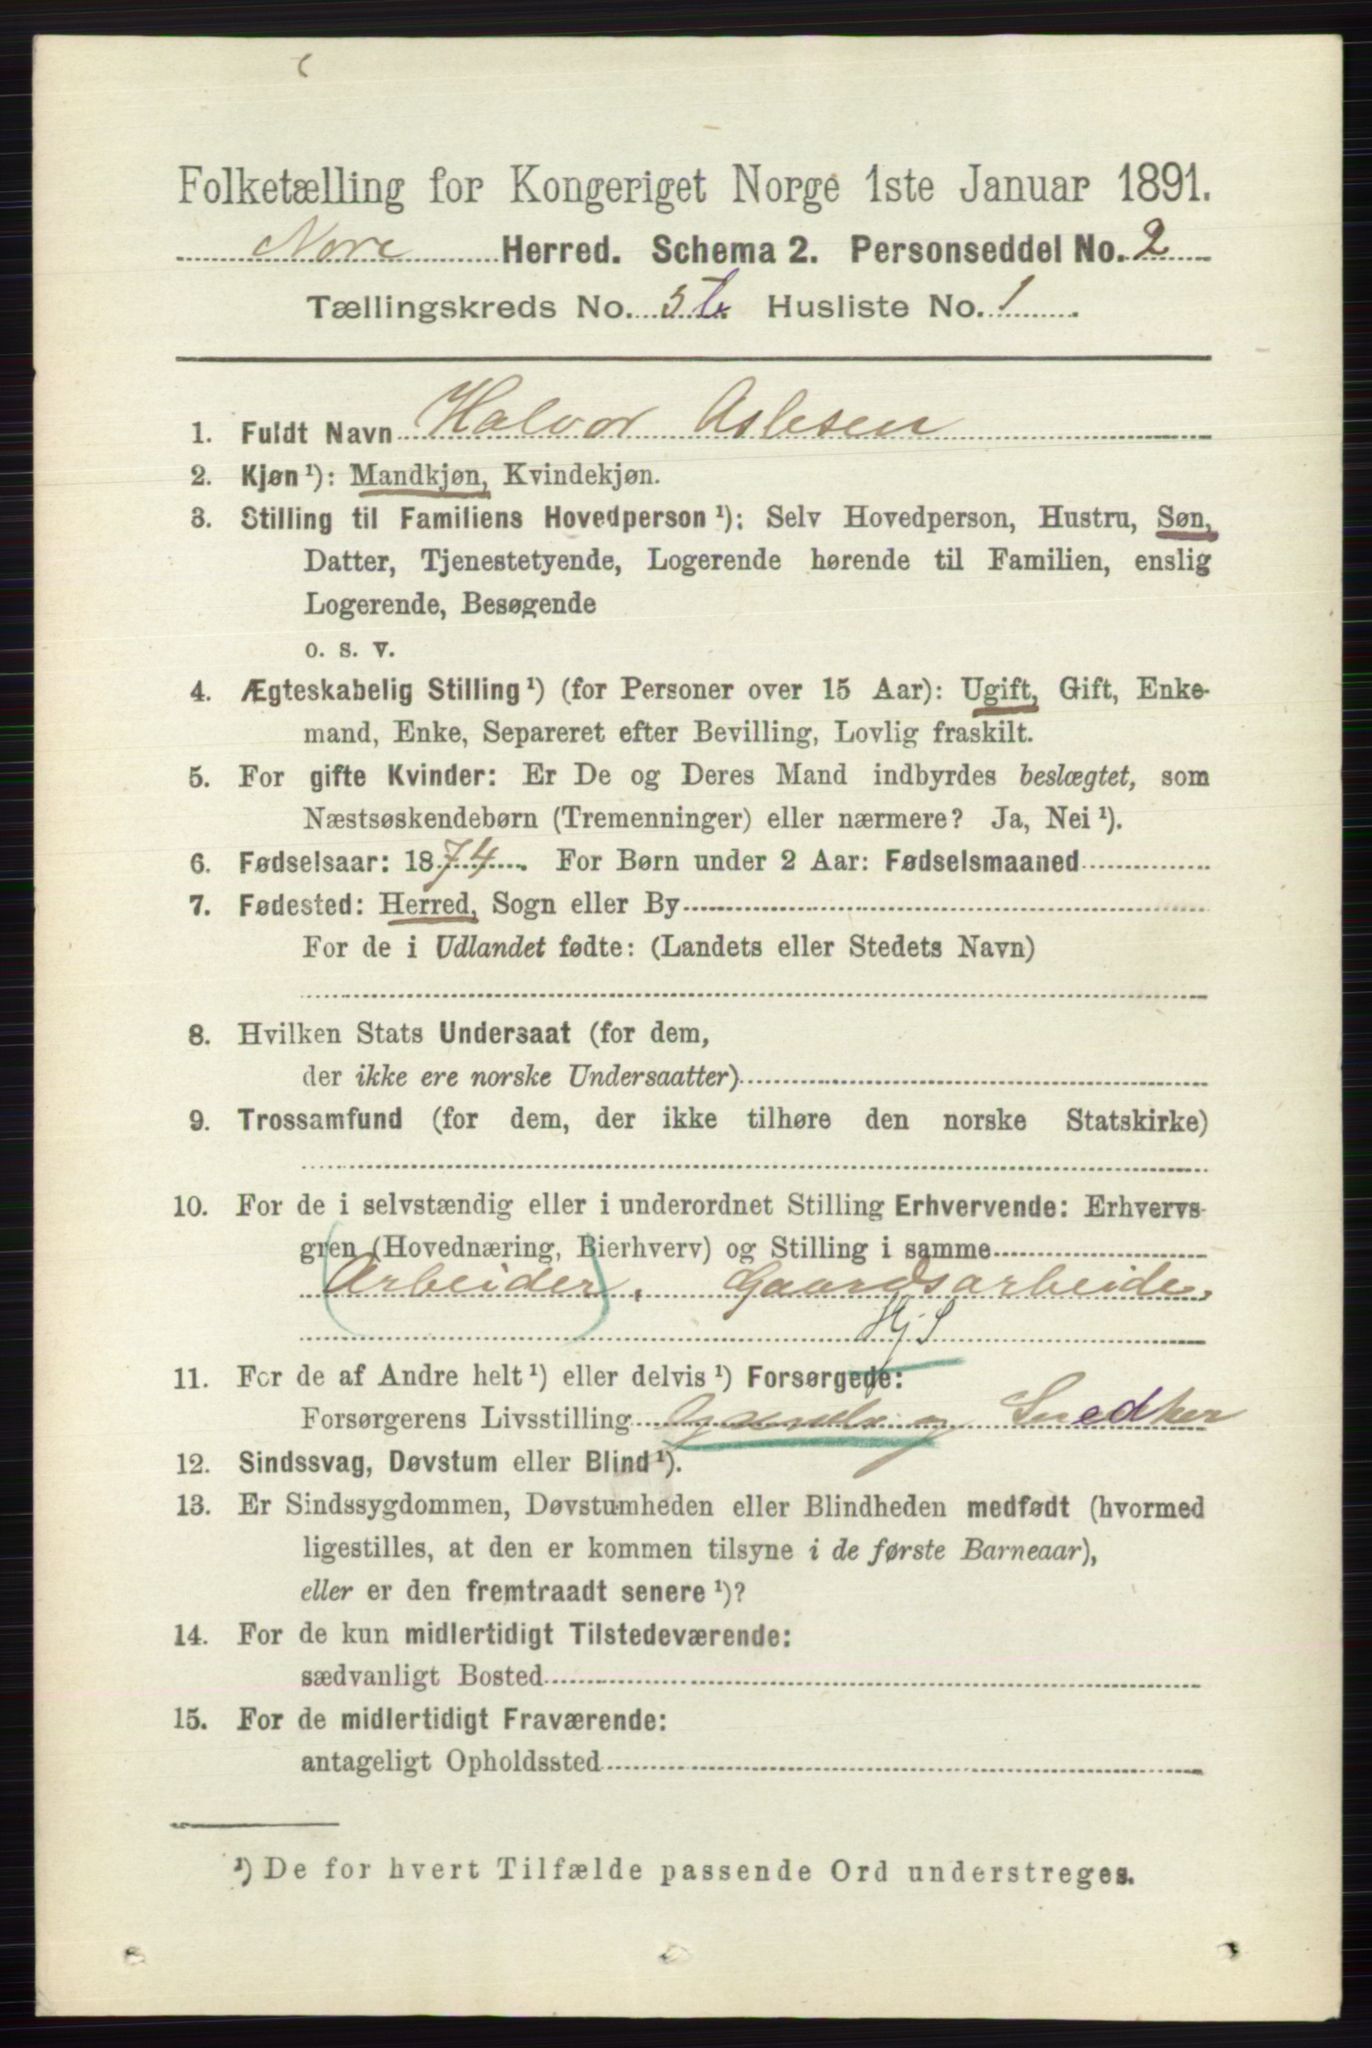 Folketælling for Kongeriget Norge 1ste Januar 1891.
Nore Herred. Schema 2. Personseddel No. 2
Tællingskreds No. 5 b. Husliste No. 1
1. Fuldt Navn Halvor Aslesen
2. Kjøn¹): Mandkjøn, Kvindekjøn.
3. Stilling til Familiens Hovedperson¹): Selv Hovedperson, Hustru, Søn,
Datter, Tjenestetyende, Logerende hørende til Familien, enslig
Logerende, Besøgende
o. s. v.
4. Ægteskabelig Stilling¹) (for Personer over 15 Aar): Ugift, Gift, Enke-
mand, Enke, Separeret efter Bevilling, Lovlig fraskilt.
5. For gifte Kvinder: Er De og Deres Mand indbyrdes beslægtet, som
Næstsøskendebørn (Tremenninger) eller nærmere? Ja, Nei¹).
6. Fødselsaar: 1874. For Børn under 2 Aar: Fødselsmaaned
7. Fødested: Herred, Sogn eller By
For de i Udlandet fødte: (Landets eller Stedets Navn)
8. Hvilken Stats Undersaat (for dem,
der ikke ere norske Undersaatter)
9. Trossamfund (for dem, der ikke tilhøre den norske Statskirke)
10. For de i selvstændig eller i underordnet Stilling Erhvervende: Erhvervs-
gren (Hovednæring, Bierhverv) og Stilling i samme
(Arbeider), Gaardsarbeide,
Hj S
11. For de af Andre helt¹) eller delvis¹) Forsørgede:
Forsørgerens Livsstilling og Snedker
12. Sindssvag, Døvstum eller Blind¹).
13. Er Sindssygdommen, Døvstumheden eller Blindheden medfødt (hvormed
ligestilles, at den er kommen tilsyne i de første Barneaar),
eller er den fremtraadt senere¹)?
14. For de kun midlertidigt Tilstedeværende:
sædvanligt Bosted
15. For de midlertidigt Fraværende:
antageligt Opholdssted
¹) De for hvert Tilfælde passende Ord understreges.